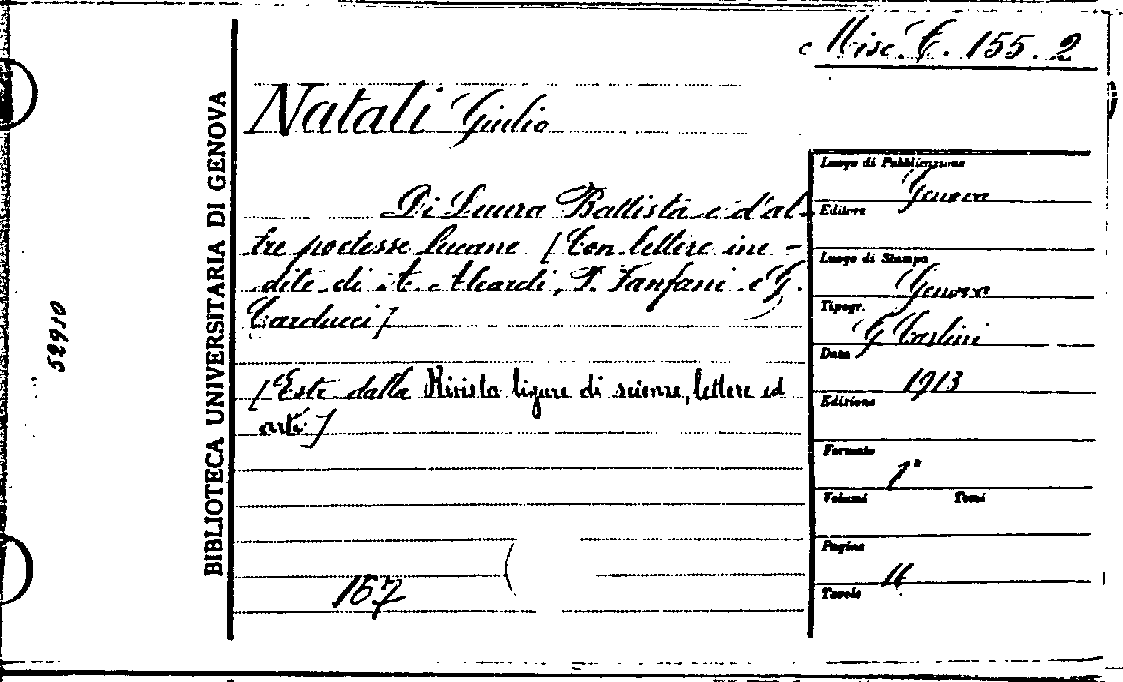 Misc. C. 155. 2
Natali Giulio
Di Laura Battista e d'al-
tre poetesse lucane [Con lettere ine-
dite di A. Aleardi, P. Fanfani e G.
Carducci]
[Estr. dalla Rivista ligure di scienze, lettere ed
arti]
157
BIBLIOTECA UNIVERSITARIA DI GENOVA
52910
Luogo di Pubblicazione
Genova
Editore
Luogo di Stampa
Genova
Tipogr.
G. Carlini
Data
1913
Edizione
Formato
Volumi Tomi
Pagine
Tavole